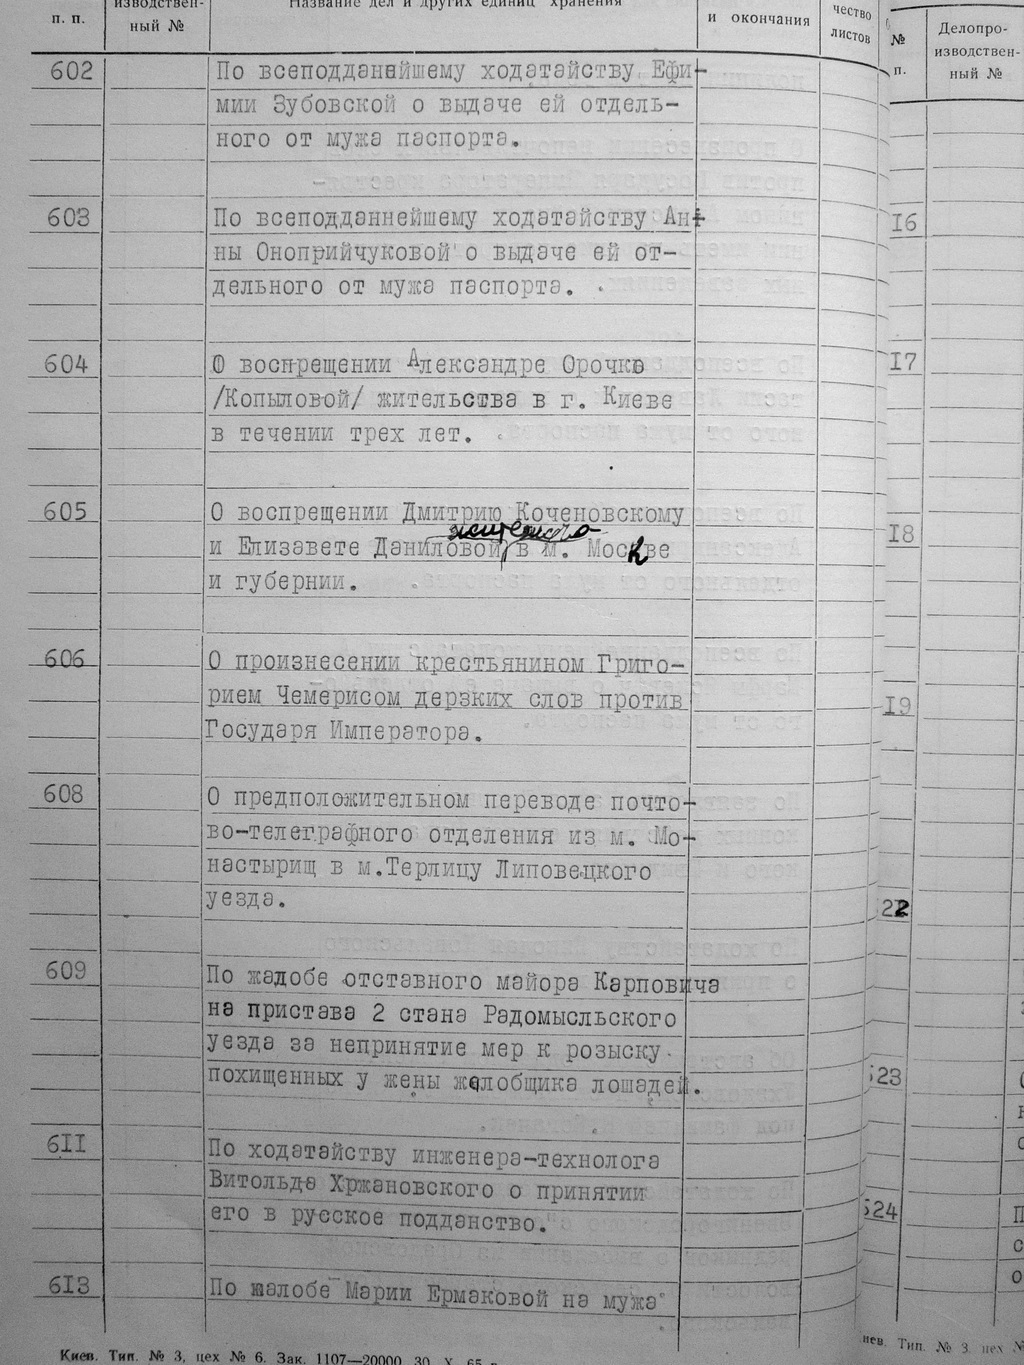 п. п.
изводствен-
ный №
Название дел и других единиц хранения
и окончания
чество
листов
602
По всеподданнейшему ходатайству Ефи-
мии Зубовской о выдаче ей отдель-
ного от мужа паспорта.
603
По всеподданнейшему ходатайству Ан-
ны Оноприйчуковой о выдаче ей от-
дельного от мужа паспорта.
604
О воспрещении Александре Орочко
/Копыловой/ жительства в г. Киеве
в течении трех лет.
605
О воспрещении Дмитрию Коченовскому
жительство
и Елизавете Даниловой в м. Москве
и губернии.
606
О произнесении крестьянином Григо-
рием Чемерисом дерзких слов против
Государя Императора.
608
О предположительном переводе почто-
во-телеграфного отделения из м. Мо-
настырищ в м.Терлицу Липовецкого
уезда.
609
По жалобе отставного майора Карповича
на пристава 2 стана Радомысльского
уезда за непринятие мер к розыску
похищенных у жены жалобщика лошадей.
6II
По ходатайству инженера-технолога
Витольда Хржановского о принятии
его в русское подданство.
6I3
По жалобе Марии Ермаковой на мужа
Киев. Тип. № 3, цех № 6. Зак. 1107—20000 30. X. 65 г.
№
п.
Делопро-
изводствен-
ный №
I6
I7
I8
I9
22
523
524
П
с
о
иев. Тип. № 3. цех №